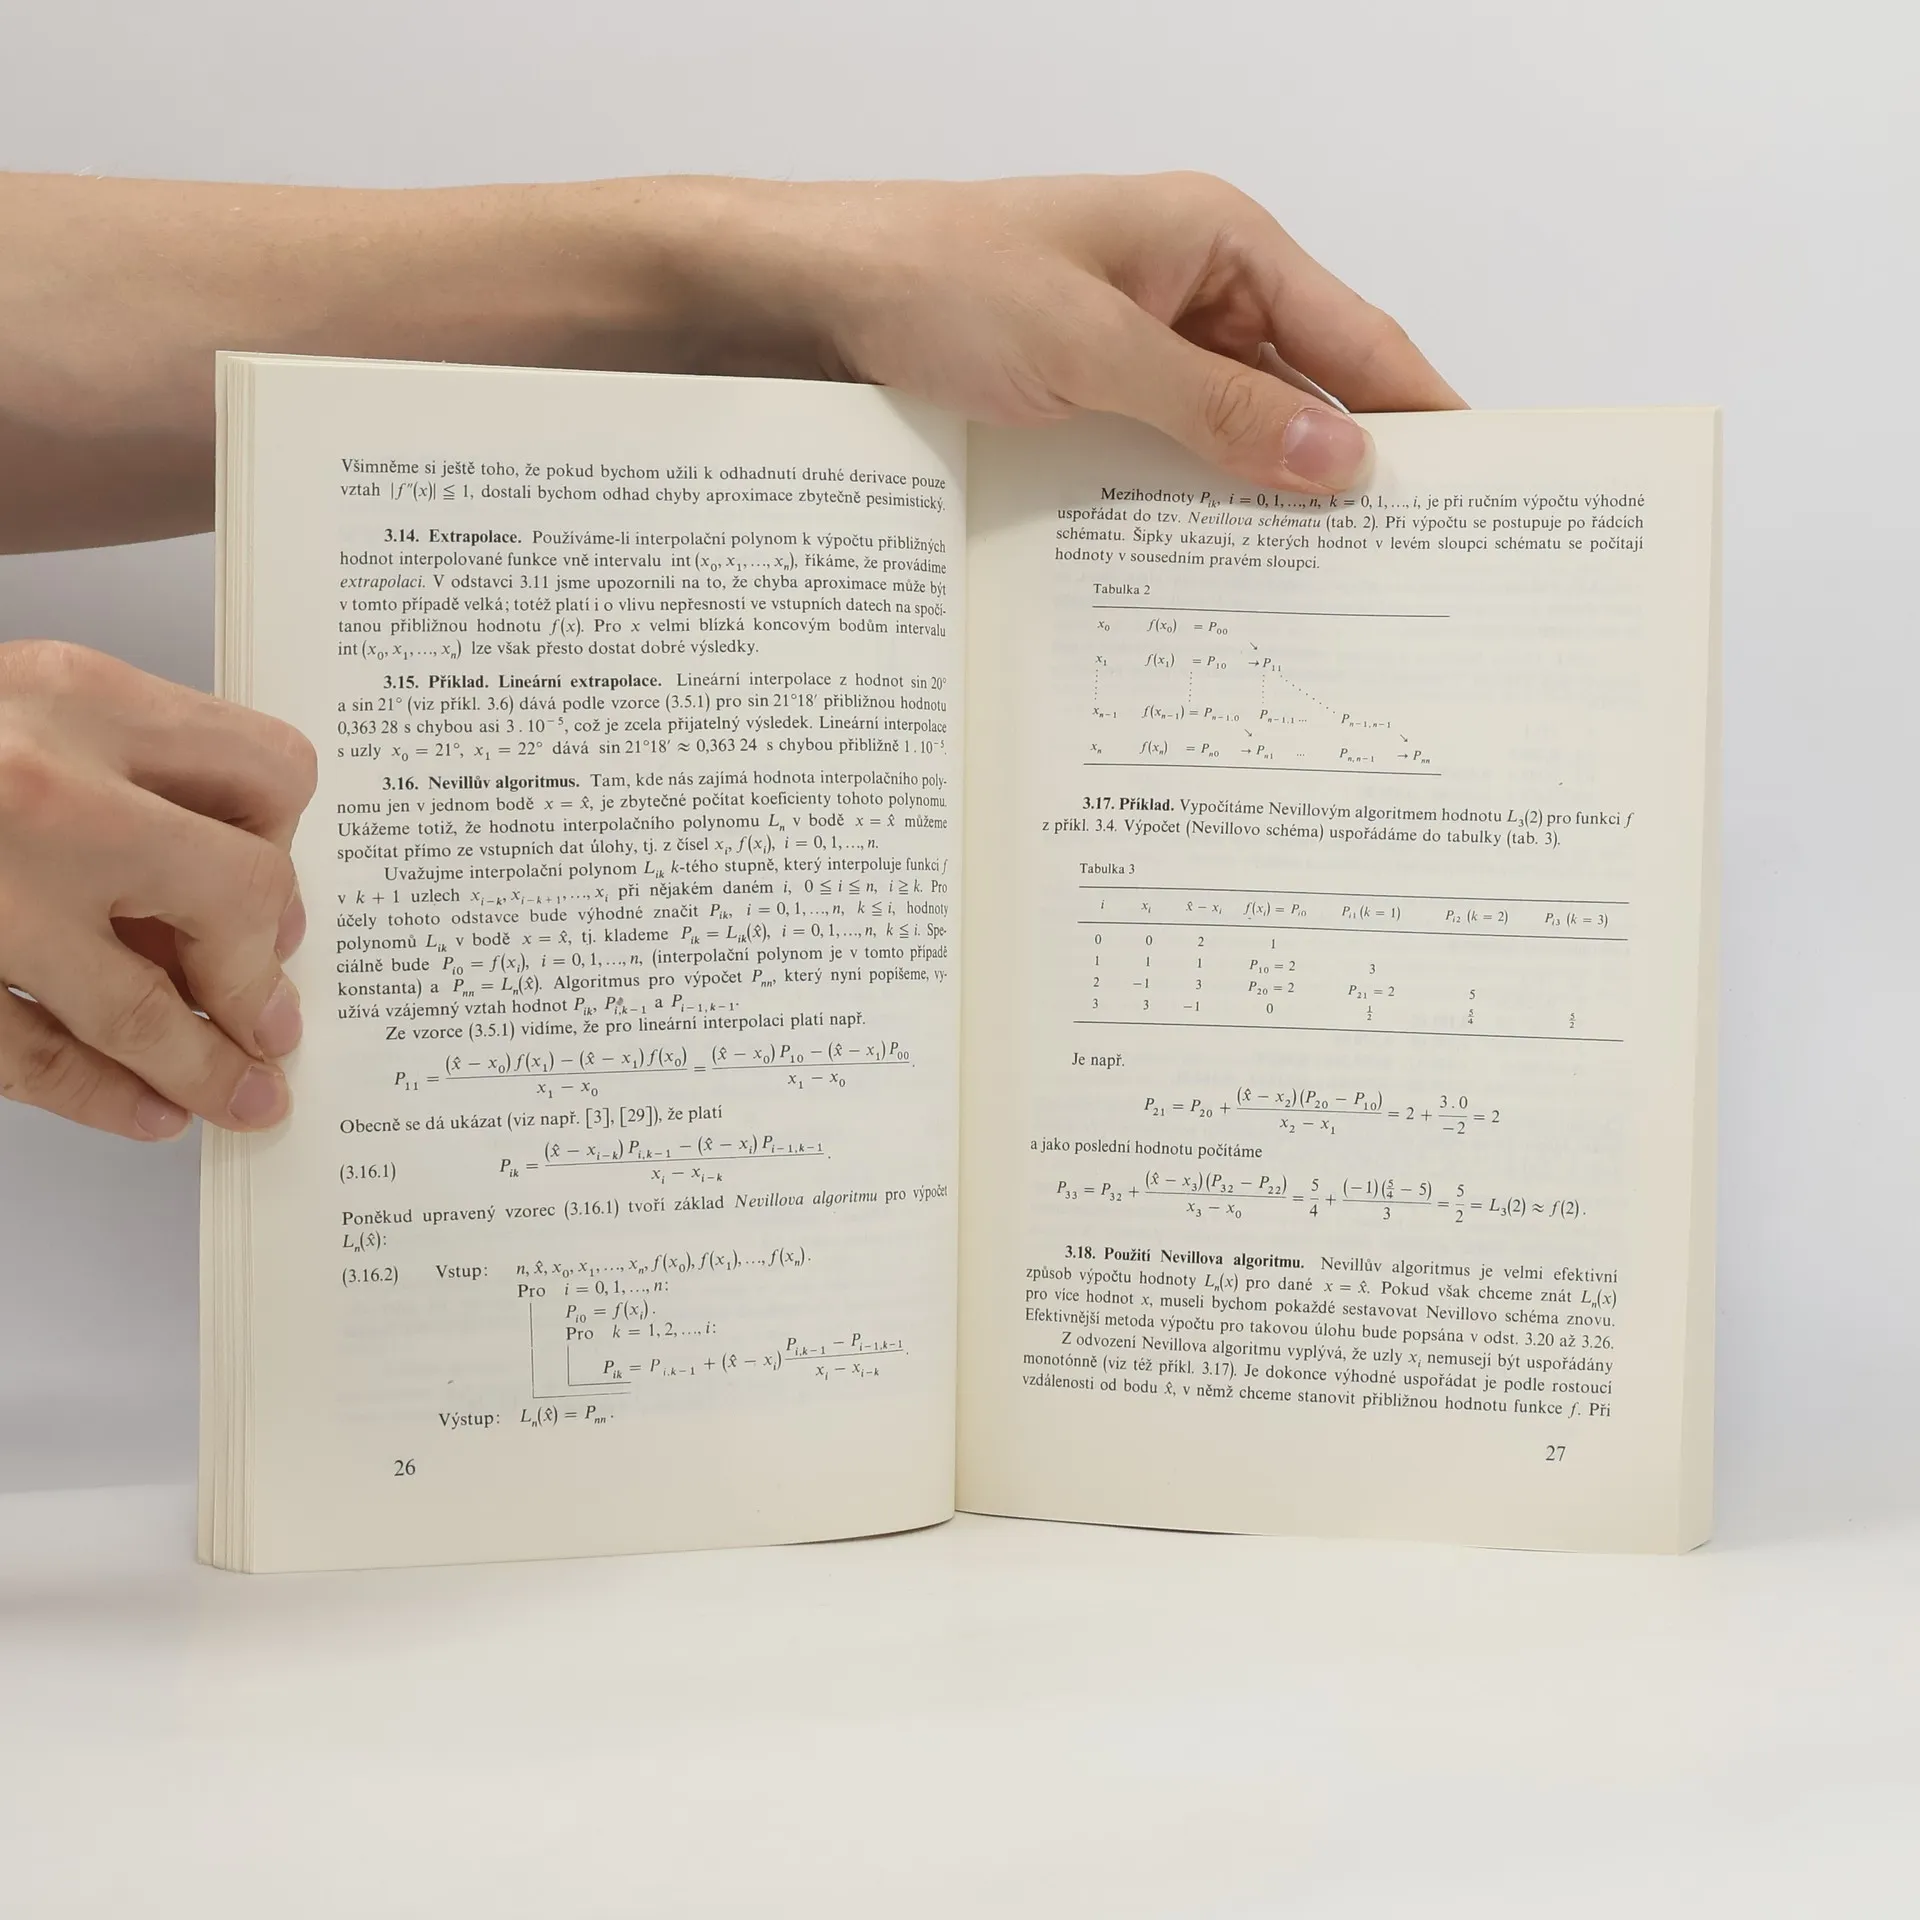 Všimněme si ještě toho, že pokud bychom užili k odhadnutí druhé derivace pouze
vztah |f″(x)| ≦ 1, dostali bychom odhad chyby aproximace zbytečně pesimistický.
3.14. Extrapolace. Používáme-li interpolační polynom k výpočtu přibližných
hodnot interpolované funkce vně intervalu int (x₀, x₁, ..., xₙ), říkáme, že provádíme
extrapolaci. V odstavci 3.11 jsme upozornili na to, že chyba aproximace může být
v tomto případě velká; totéž platí i o vlivu nepřesností ve vstupních datech na spočí-
tanou přibližnou hodnotu f(x). Pro x velmi blízká koncovým bodům intervalu
int (x₀, x₁, ..., xₙ) lze však přesto dostat dobré výsledky.
3.15. Příklad. Lineární extrapolace. Lineární interpolace z hodnot sin 20°
a sin 21° (viz příkl. 3.6) dává podle vzorce (3.5.1) pro sin 21°18′ přibližnou hodnotu
0,363 28 s chybou asi 3 . 10⁻⁵, což je zcela přijatelný výsledek. Lineární interpolace
s uzly x₀ = 21°, x₁ = 22° dává sin 21°18′ ≈ 0,363 24 s chybou přibližně 1 . 10⁻⁵.
3.16. Nevillův algoritmus. Tam, kde nás zajímá hodnota interpolačního poly-
nomu jen v jednom bodě x = x̂, je zbytečné počítat koeficienty tohoto polynomu.
Ukážeme totiž, že hodnotu interpolačního polynomu Lₙ v bodě x = x̂ můžeme
spočítat přímo ze vstupních dat úlohy, tj. z čísel xᵢ, f(xᵢ), i = 0, 1, ..., n.
Uvažujme interpolační polynom L_{ik} k-tého stupně, který interpoluje funkci f
v k + 1 uzlech x_{i−k}, x_{i−k+1}, ..., xᵢ při nějakém daném i, 0 ≦ i ≦ n, i ≧ k. Pro
účely tohoto odstavce bude výhodné značit P_{ik}, i = 0, 1, ..., n, k ≦ i, hodnoty
polynomů L_{ik} v bodě x = x̂, tj. klademe P_{ik} = L_{ik}(x̂), i = 0, 1, ..., n, k ≦ i. Spe-
ciálně bude P_{i0} = f(xᵢ), i = 0, 1, ..., n, (interpolační polynom je v tomto případě
konstanta) a P_{nn} = Lₙ(x̂). Algoritmus pro výpočet P_{nn}, který nyní popíšeme, vy-
užívá vzájemný vztah hodnot P_{ik}, P_{i,k−1} a P_{i−1,k−1}.
Ze vzorce (3.5.1) vidíme, že pro lineární interpolaci platí např.
P₁₁ = ((x̂ − x₀) f(x₁) − (x̂ − x₁) f(x₀)) / (x₁ − x₀) = ((x̂ − x₀) P₁₀ − (x̂ − x₁) P₀₀) / (x₁ − x₀).
Obecně se dá ukázat (viz např. [3], [29]), že platí
(3.16.1) P_{ik} = ((x̂ − x_{i−k}) P_{i,k−1} − (x̂ − xᵢ) P_{i−1,k−1}) / (xᵢ − x_{i−k}).
Poněkud upravený vzorec (3.16.1) tvoří základ Nevillova algoritmu pro výpočet
Lₙ(x̂):
(3.16.2) Vstup: n, x̂, x₀, x₁, ..., xₙ, f(x₀), f(x₁), ..., f(xₙ).
Pro i = 0, 1, ..., n:
P_{i0} = f(xᵢ).
Pro k = 1, 2, ..., i:
P_{ik} = P_{i,k−1} + (x̂ − xᵢ) (P_{i,k−1} − P_{i−1,k−1}) / (xᵢ − x_{i−k}).
Výstup: Lₙ(x̂) = P_{nn}.
26
Mezihodnoty P_{ik}, i = 0, 1, ..., n, k = 0, 1, ..., i, je při ručním výpočtu výhodné
uspořádat do tzv. Nevillova schématu (tab. 2). Při výpočtu se postupuje po řádcích
schématu. Šipky ukazují, z kterých hodnot v levém sloupci schématu se počítají
hodnoty v sousedním pravém sloupci.
Tabulka 2
x₀ f(x₀) = P₀₀
↘
x₁ f(x₁) = P₁₀ → P₁₁
x_{n−1} f(x_{n−1}) = P_{n−1,0} P_{n−1,1} ... P_{n−1,n−1}
↘ ↘
xₙ f(xₙ) = P_{n0} → P_{n1} ... P_{n,n−1} → P_{nn}
3.17. Příklad. Vypočítáme Nevillovým algoritmem hodnotu L₃(2) pro funkci f
z příkl. 3.4. Výpočet (Nevillovo schéma) uspořádáme do tabulky (tab. 3).
Tabulka 3
i xᵢ x̂ − xᵢ f(xᵢ) = P_{i0} P_{i1} (k = 1) P_{i2} (k = 2) P_{i3} (k = 3)
0 0 2 1
1 1 1 P₁₀ = 2 3
2 −1 3 P₂₀ = 2 P₂₁ = 2 5
3 3 −1 0 1/2 5/4 5/2
Je např.
P₂₁ = P₂₀ + (x̂ − x₂)(P₂₀ − P₁₀) / (x₂ − x₁) = 2 + 3 . 0 / −2 = 2
a jako poslední hodnotu počítáme
P₃₃ = P₃₂ + (x̂ − x₃)(P₃₂ − P₂₂) / (x₃ − x₀) = 5/4 + (−1)(5/4 − 5) / 3 = 5/2 = L₃(2) ≈ f(2).
3.18. Použití Nevillova algoritmu. Nevillův algoritmus je velmi efektivní
způsob výpočtu hodnoty Lₙ(x) pro dané x = x̂. Pokud však chceme znát Lₙ(x)
pro více hodnot x, museli bychom pokaždé sestavovat Nevillovo schéma znovu.
Efektivnější metoda výpočtu pro takovou úlohu bude popsána v odst. 3.20 až 3.26.
Z odvození Nevillova algoritmu vyplývá, že uzly xᵢ nemusejí být uspořádány
monotónně (viz též příkl. 3.17). Je dokonce výhodné uspořádat je podle rostoucí
vzdálenosti od bodu x̂, v němž chceme stanovit přibližnou hodnotu funkce f. Při
27